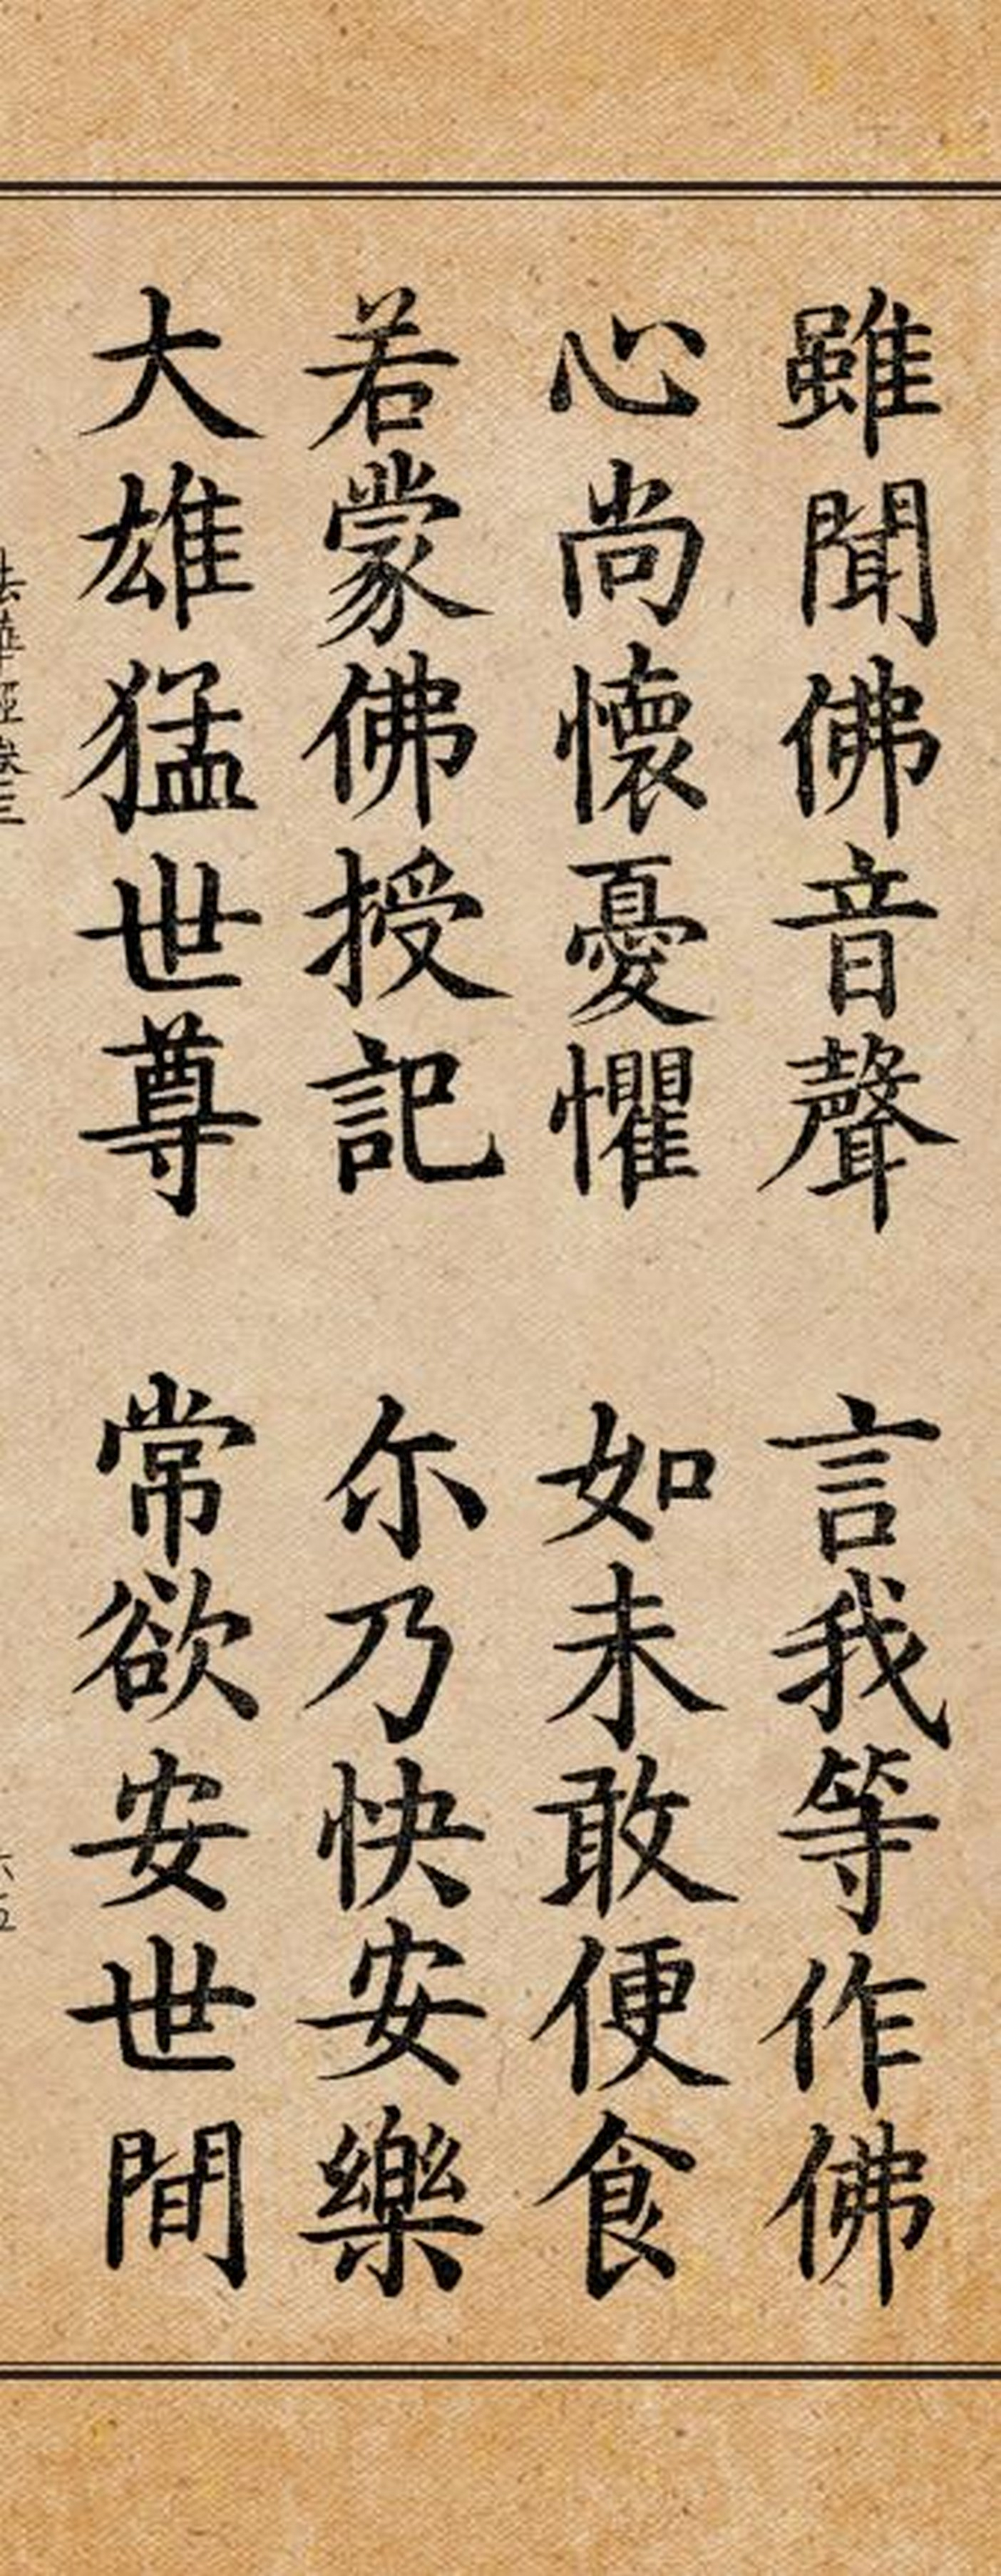 雖聞佛音聲 言我等作佛
心尚懷憂懼 如未敢便食
若蒙佛授記 尒乃快安樂
大雄猛世尊 常欲安世間
法華經卷三 六五